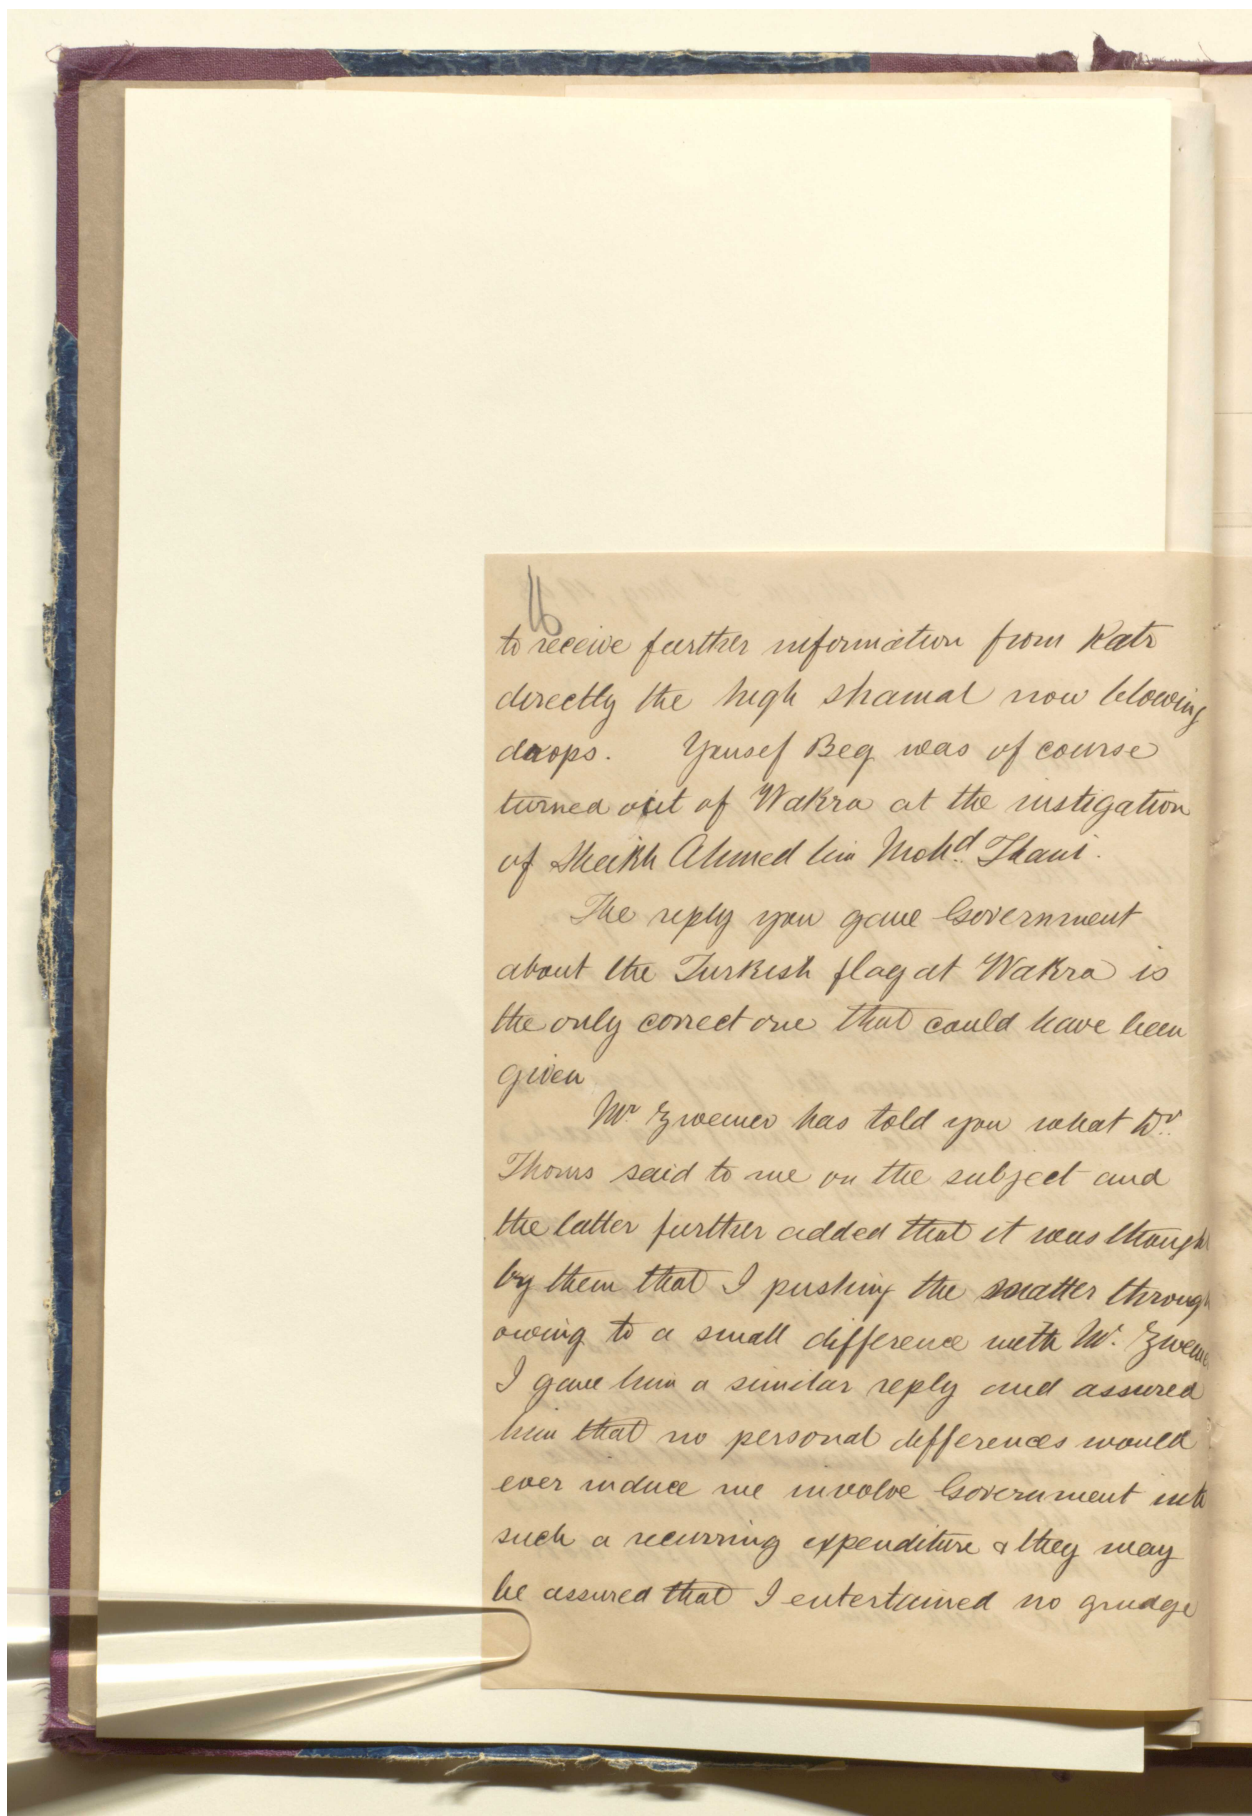 16
to receive further information from Katr
directly the high shamal now blowing
drops. Yousef Beg was of course
turned out of Wakra at the instigation
of Sheikh Ahmed bin Mohd. Thani.
The reply you gave Government
about the Turkish flag at Wakra is
the only correct one that could have been
given
Mr. Zwemer has told you what Dr.
Thoms said to me on the subject and
the latter further added that it was though
by them that I pushing the matter through
owing to a small difference with Mr. Zweme
I gave him a similar reply and assured
him that no personal differences would
ever induce me involve Government into
such a recurring expenditure & they may
be assured that I entertained no grudge